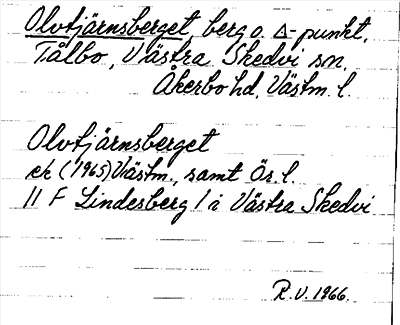 Olvtjärnsberget, berg o. Δ-punkt,
Tålbo, Västra Skedvi sn,
Åkerbo hd, Västm. l.
Olvtjärnsberget
ek (1965) Västm., samt Ör. l.
11 F Lindesberg / i Västra Skedvi
R.V. 1966.